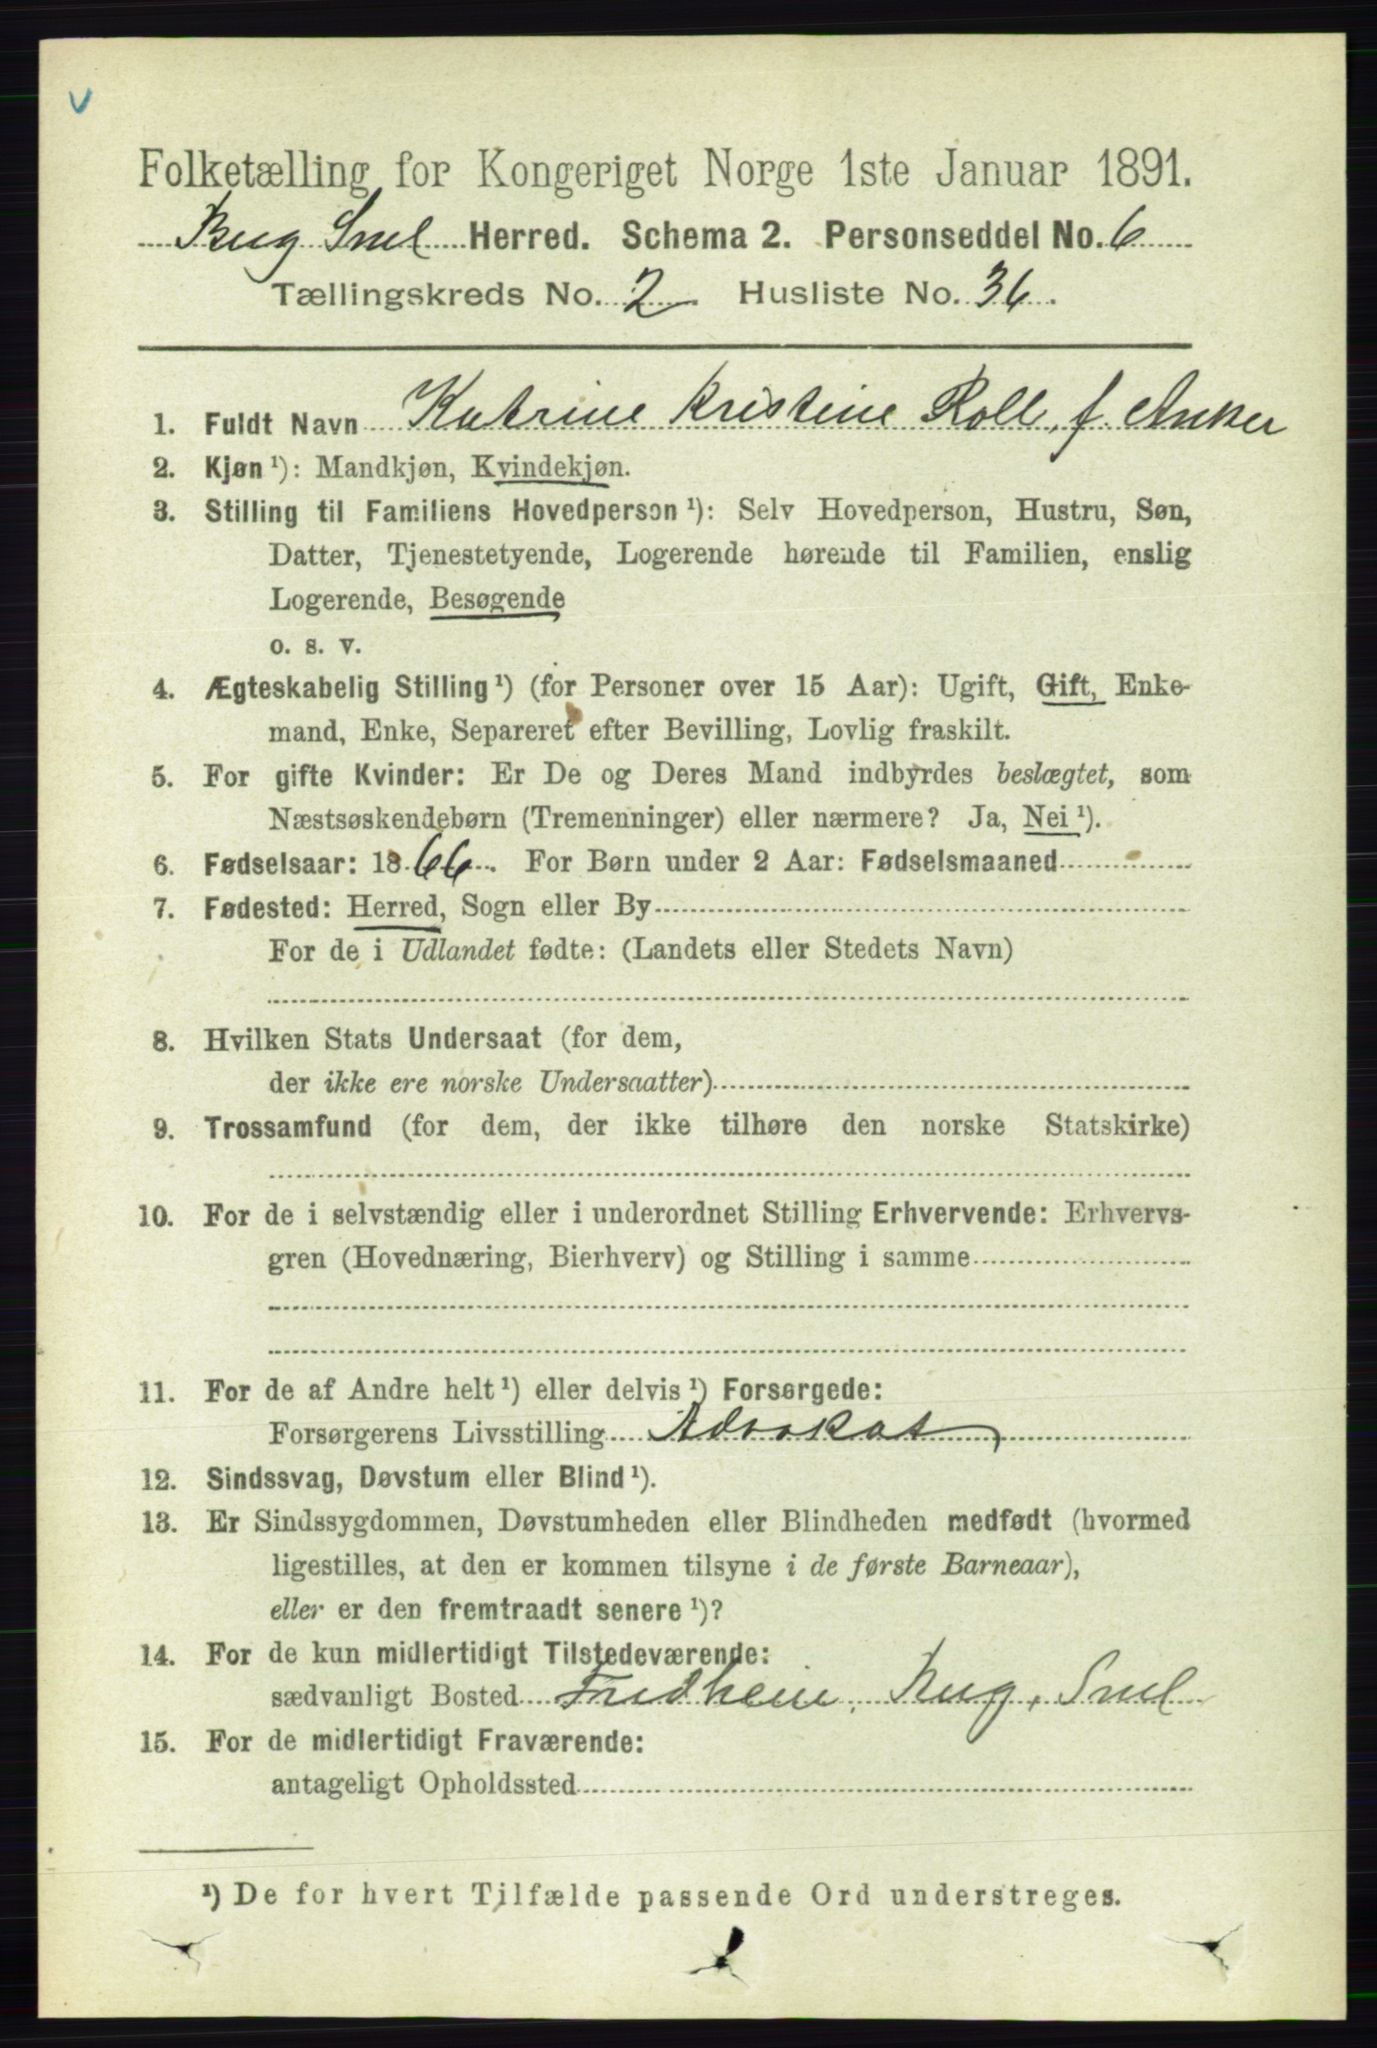 Folketælling for Kongeriget Norge 1ste Januar 1891.
Berg Sml Herred. Schema 2. Personseddel No. 6
Tællingskreds No. 2 Husliste No. 36.
1. Fuldt Navn Katrine Kristine Roll, f. Anker
2. Kjøn ¹): Mandkjøn, Kvindekjøn.
3. Stilling til Familiens Hovedperson ¹): Selv Hovedperson, Hustru, Søn,
Datter, Tjenestetyende, Logerende hørende til Familien, enslig
Logerende, Besøgende
o. s. v.
4. Ægteskabelig Stilling ¹) (for Personer over 15 Aar): Ugift, Gift, Enke-
mand, Enke, Separeret efter Bevilling, Lovlig fraskilt.
5. For gifte Kvinder: Er De og Deres Mand indbyrdes beslægtet, som
Næstsøskendebørn (Tremenninger) eller nærmere? Ja, Nei ¹).
6. Fødselsaar: 1866. For Børn under 2 Aar: Fødselsmaaned
7. Fødested: Herred, Sogn eller By
For de i Udlandet fødte: (Landets eller Stedets Navn)
8. Hvilken Stats Undersaat (for dem,
der ikke ere norske Undersaatter)
9. Trossamfund (for dem, der ikke tilhøre den norske Statskirke)
10. For de i selvstændig eller i underordnet Stilling Erhvervende: Erhvervs-
gren (Hovednæring, Bierhverv) og Stilling i samme
11. For de af Andre helt ¹) eller delvis ¹) Forsørgede:
Forsørgerens Livsstilling Advokat
12. Sindssvag, Døvstum eller Blind ¹).
13. Er Sindssygdommen, Døvstumheden eller Blindheden medfødt (hvormed
ligestilles, at den er kommen tilsyne i de første Barneaar),
eller er den fremtraadt senere ¹)?
14. For de kun midlertidigt Tilstedeværende:
sædvanligt Bosted Fredheim, Berg, Sml
15. For de midlertidigt Fraværende:
antageligt Opholdssted
¹) De for hvert Tilfælde passende Ord understreges.